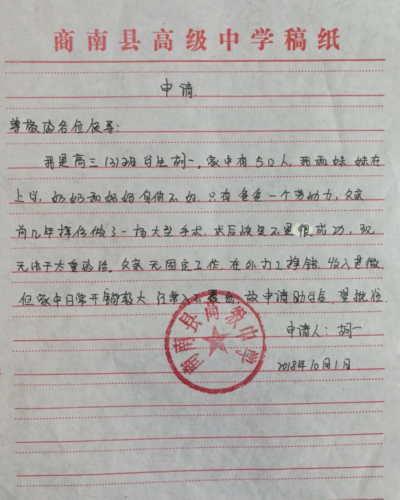 商南县高级中学稿纸
申请
尊敬的各位领导:
我是高三(3)班学生胡一。家中有5口人,我和妹妹在
上学,奶奶和妈妈身体不好,只有爸爸一个劳动力,父亲
前几年摔伤做了一场大型手术,术后恢复不是很成功,现
无法干太重的活。父亲无固定工作,在外力工挣钱,收入甚微
但家中日常开销较大,经常入不敷出,故申请助学金,望批准
申请人:胡一
2018年10月1日
商南县高级中学